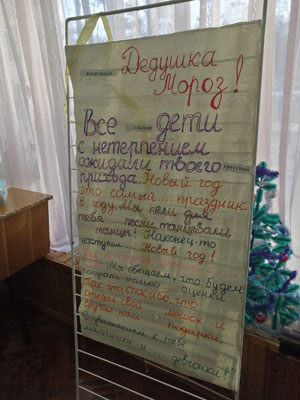 Дедушка
Мороз!
Все дети
с нетерпением
ожидали твоего
прихода. Новый год
это самый .... праздник
в году. Мы пели для
тебя песни, танцевали
танцы! Наконец-то
наступил .... Новый год!
Мы обещаем, что будем
получать только оценки
Так что спасибо, что
открыл свой мешок и
подарки.
С уважением к тебе
мальчишки и .... девчонки!